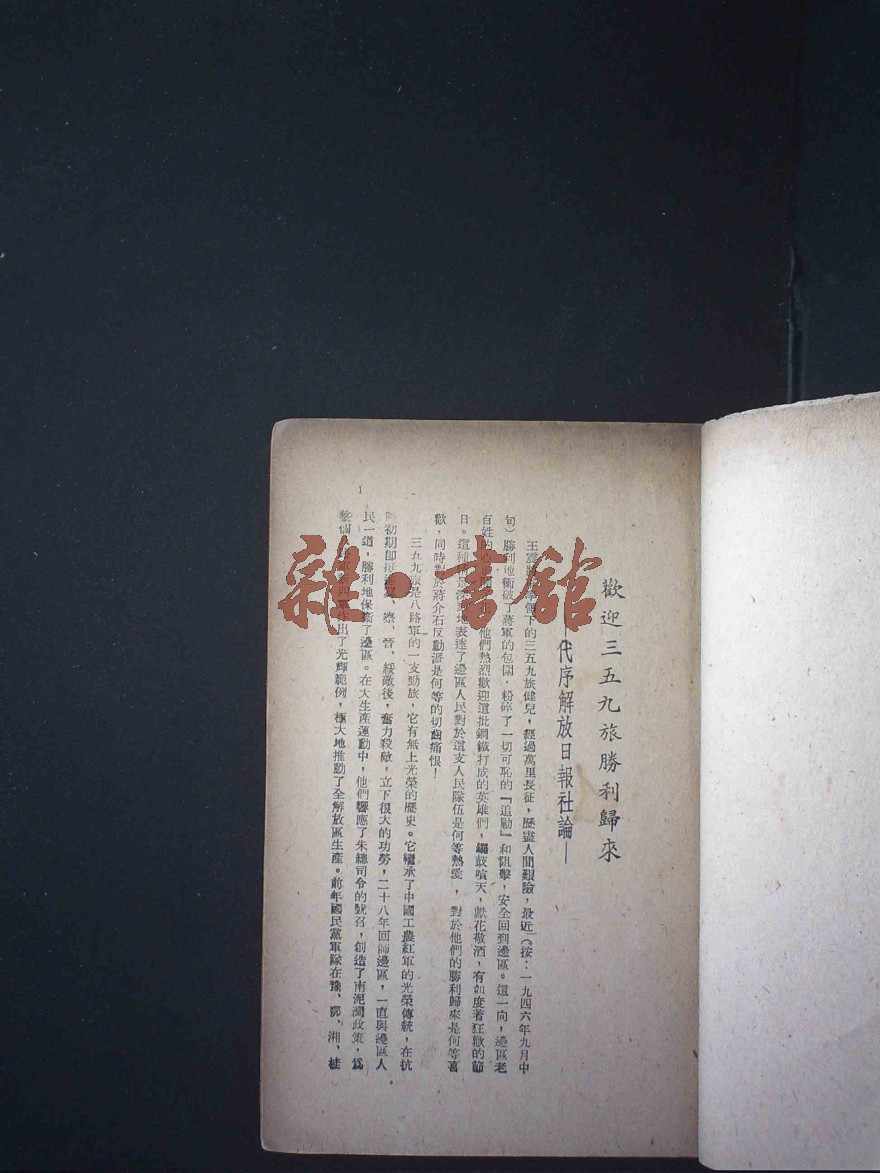 歡迎三五九旅勝利歸來
—代序解放日報社論—
王震將領下的三五九旅健兒，經過萬里長征，歷盡人間艱險，最近（按：一九四六年九月中
旬）勝利地衝破了蔣軍的包圍，粉碎了一切可恥的『追勦』和阻擊，安全回到邊區。這一向，邊區老
百姓的心他們熱烈歡迎這批鋼鐵打成的英雄們，鑼鼓喧天，獻花敬酒，有如度着狂歡的節
日。這種深地表達了邊區人民對於這支人民隊伍是何等熱愛，對於他們的勝利歸來是何等喜
歡，同時對於蔣介石反動派是何等的切齒痛恨！
三五九旅是八路軍的一支勁旅，它有無上光榮的歷史。它繼承了中國工農紅軍的光榮傳統，在抗
初期卽挺、察、晉、綏敵後，奮力殺敵，立下很大的功勞，二十八年回師邊區，一直與邊區人
民一道，勝利地保衞了邊區。在大生產運動中，他們響應了朱總司令的號召，創造了南泥灣政策，爲
整個四軍作出了光輝範例，極大地推動了全解放區生產。前年國民黨軍隊在豫、鄂、湘、桂
1
雜·書館